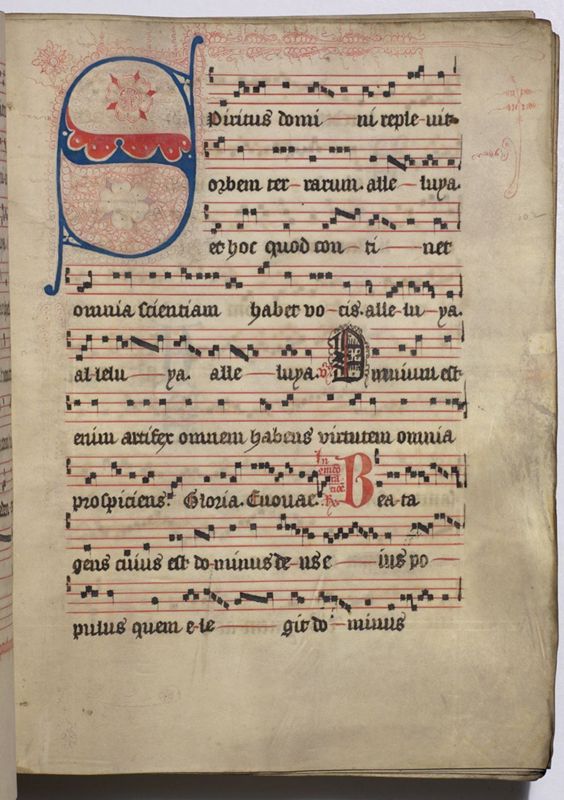 Spiritus domi ni reple-uit
orbem ter-rarum. alle luya.
et hoc quod con ti net
omnia scientiam habet uo-cis. alle-lu-ya.
al lelu ya. alle luya. Omnium est
enim artifex omnem habens virtutem omnia
prospiciens. Gloria. Euouae. Bea-ta
gens cuius est do-minus de us e ius po
pulus quem e-le git do-minus